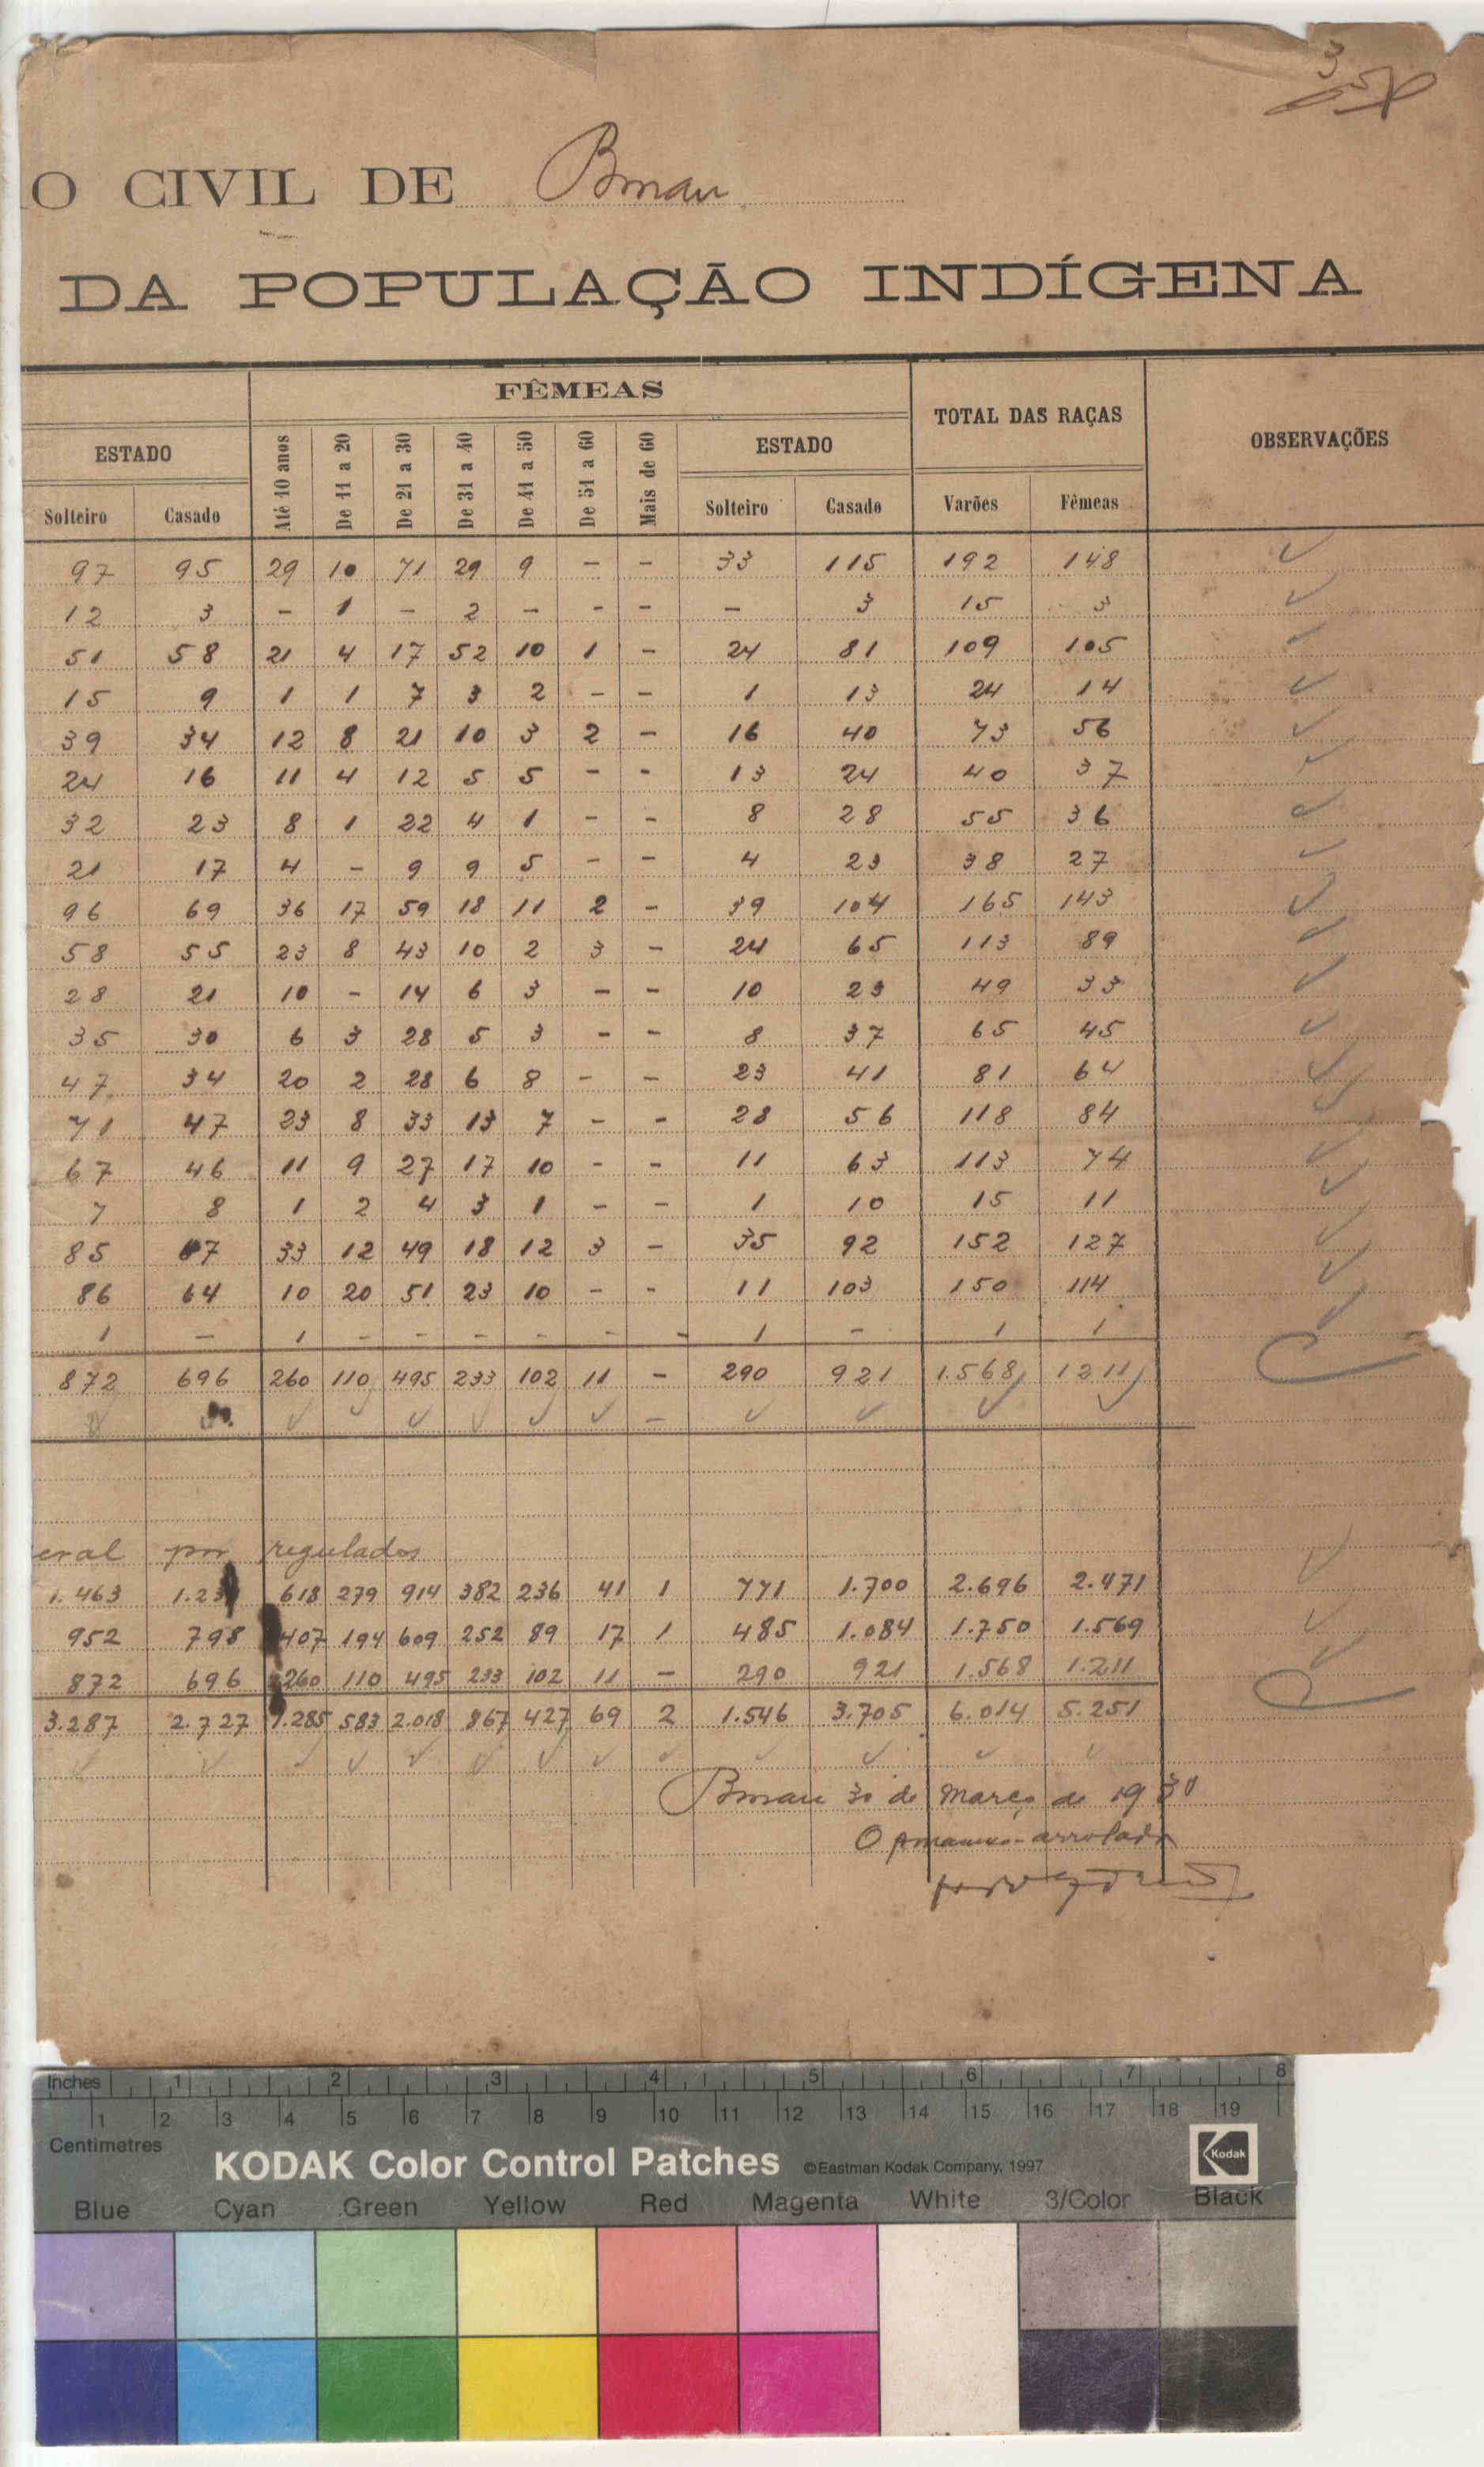 O CIVIL DE
DA POPULAÇÃO INDÍGENA
FÊMEAS
TOTAL DAS RAÇAS
OBSERVAÇÕES
ESTADO
ESTADO
Solteiro Casado Até 10 anos De 11 a 20 De 21 a 30 De 31 a 40 De 41 a 50 De 51 a 60 Mais de 60 Solteiro Casado Varões Fêmeas
97 95 29 10 71 29 9 - - 33 115 192 148
12 3 - 1 - 2 - - - - 3 15 3
51 58 21 4 17 52 10 1 - 24 81 109 105
15 9 1 1 7 3 2 - - 1 13 24 14
39 34 12 8 21 10 3 2 - 16 40 73 56
24 16 11 4 12 5 5 - - 13 24 40 37
32 23 8 1 22 4 1 - - 8 28 55 36
21 17 4 - 9 9 5 - - 4 23 38 27
96 69 36 17 59 18 11 2 - 39 104 165 143
58 55 23 8 43 10 2 3 - 24 65 113 89
28 21 10 - 14 6 3 - - 10 23 49 33
35 30 6 3 28 5 3 - - 8 37 65 45
47 34 20 2 28 6 8 - - 23 41 81 64
71 47 23 8 33 13 7 - - 28 56 118 84
67 46 11 9 27 17 10 - - 11 63 113 74
7 8 1 2 4 3 1 - - 1 10 15 11
85 67 33 12 49 18 12 3 - 35 92 152 127
86 64 10 20 51 23 10 - - 11 103 150 114
1 - 1 - - - - - - 1 - 1 1
872 696 260 110 495 233 102 11 - 290 921 1.568 1211
eral por regulados
1.463 618 279 914 382 236 41 1 771 1.700 2.696 2.471
952 798 407 194 609 252 89 17 1 485 1.084 1.750 1.569
872 696 260 110 495 233 102 11 - 290 921 1.568 1.211
3.287 2.727 1.285 583 2.018 867 427 69 2 1.546 3.705 6.014 5.251
30 de Março de 1930
O
Inches 1 2 3 4 5 6 7 8
1 2 3 4 5 6 7 8 9 10 11 12 13 14 15 16 17 18 19
Centimetres
KODAK Color Control Patches ©Eastman Kodak Company, 1997 Kodak
Blue Cyan Green Yellow Red Magenta White 3/Color Black